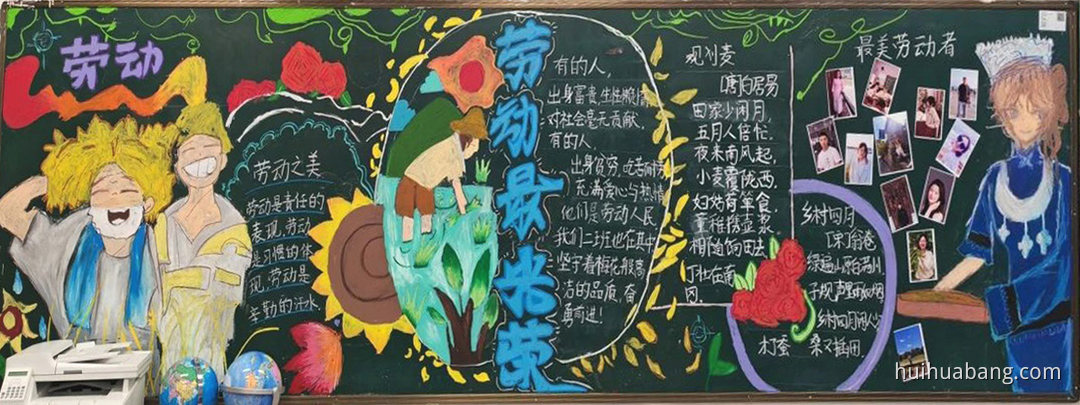 劳动
劳动之美
劳动是责任的
表现,劳动
是习惯的体
现,劳动是
辛勤的汗水
劳动最光荣
有的人,
出身富贵,生性懒惰
对社会毫无贡献.
有的人,
出身贫穷,吃苦耐劳
充满爱心与热情
他们是劳动人民
我们二班也在其中
坚守着梅花般高
洁的品质,奋
勇前进!
观刈麦
[唐]白居易
田家少闲月,
五月人倍忙.
夜来南风起,
小麦覆陇黄.
妇姑荷箪食,
童稚携壶浆.
相随饷田去
丁壮在南
冈.
最美劳动者
乡村四月
[宋]翁卷
绿遍山原白满川,
子规声里雨如烟
乡村四月闲人少
才了蚕 桑又插田.
huihuabang.com